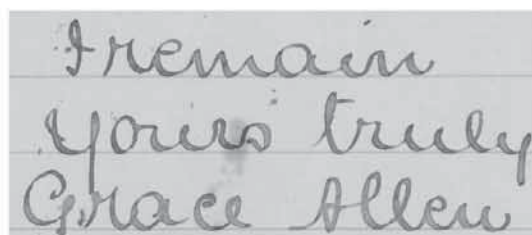 I remain
yours truly
Grace Allen